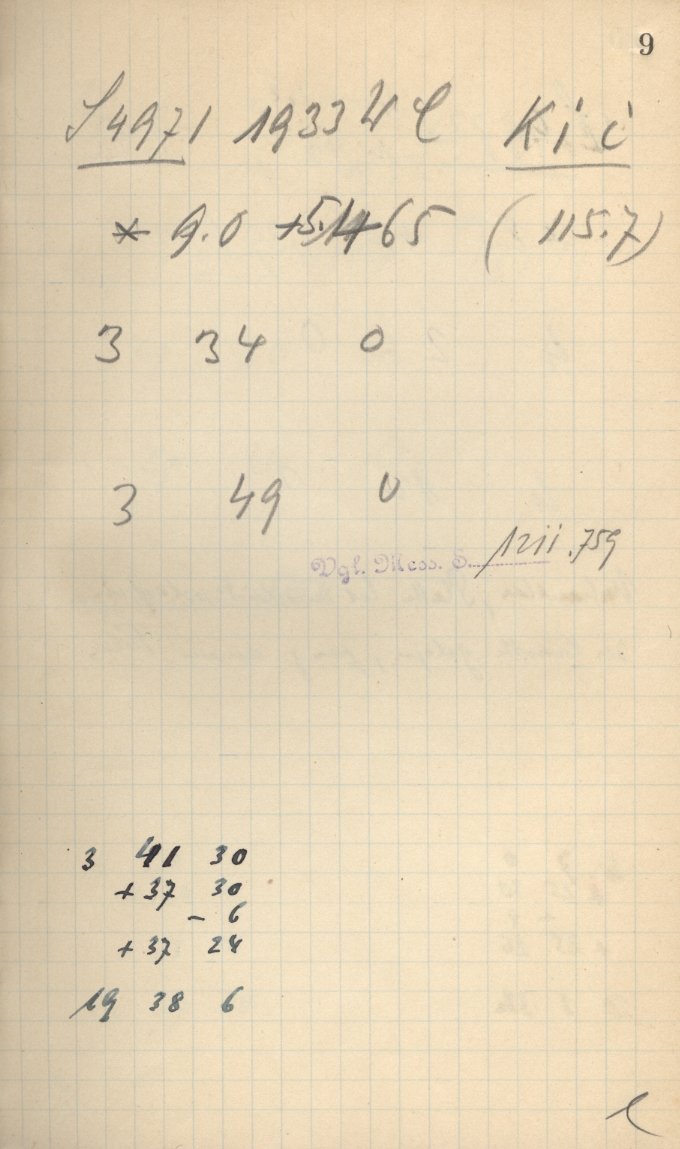 9
S 4971 1933 Kič
* 9.0 +5. 65 (115.7)
3 34 0
3 49 0
Vgl. Mess. S. 1211.759
3 41 30
+37 30
- 6
+37 24
19 38 6